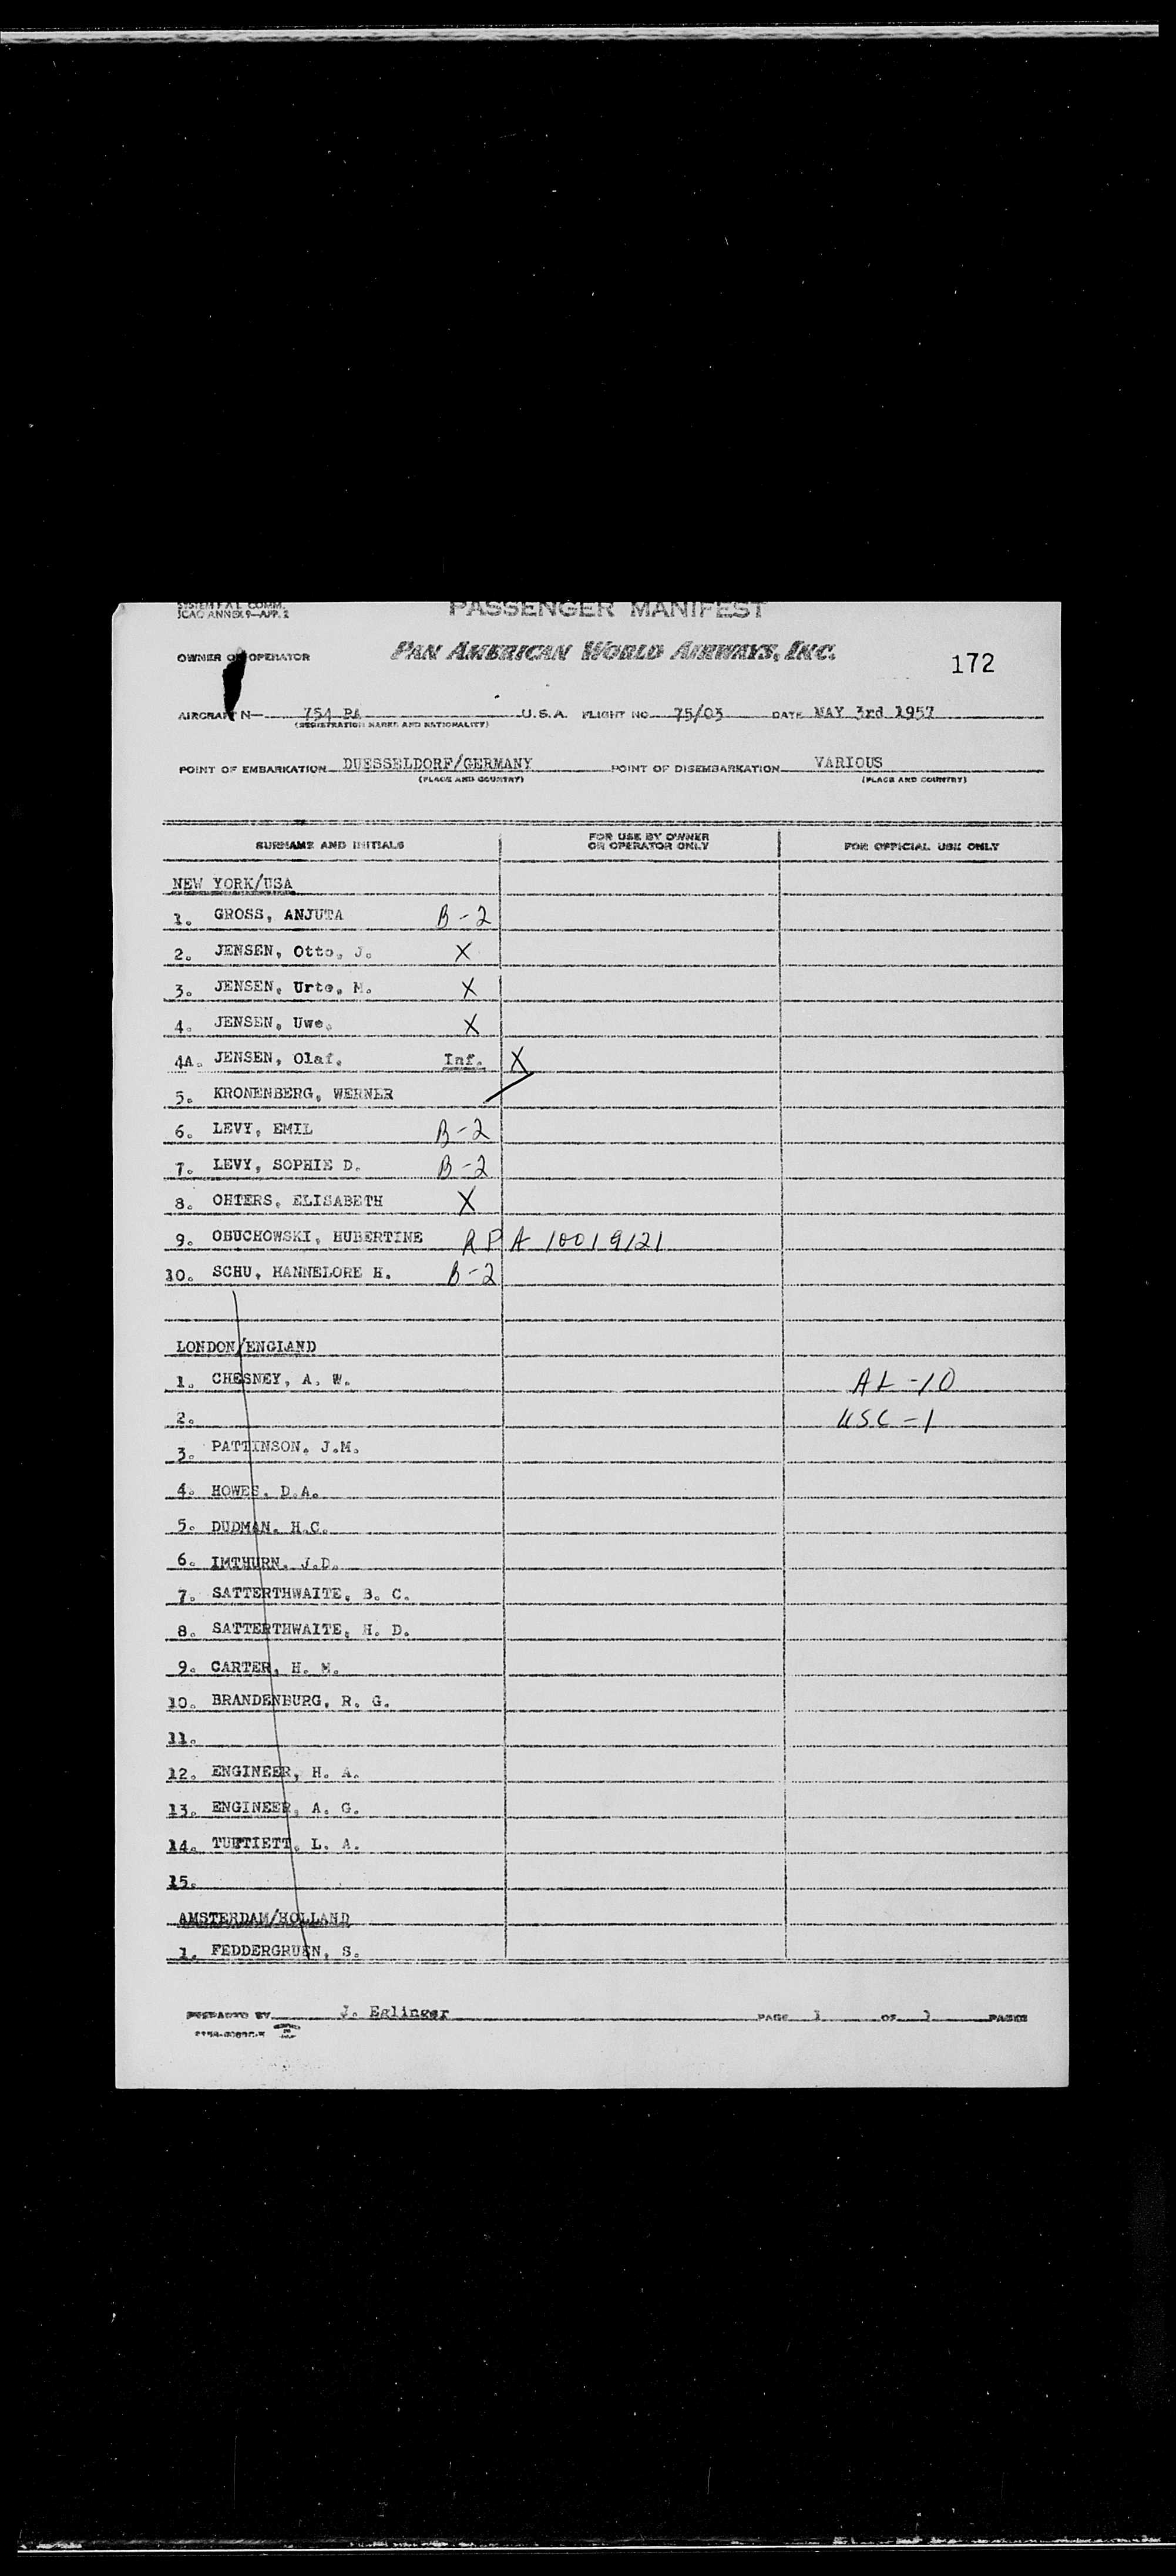 SYSTEM F.A.L. COMM.
ICAO ANNEX 9—APP. 2
PASSENGER MANIFEST
OWNER OR OPERATOR PAN AMERICAN WORLD AIRWAYS, INC.
172
AIRCRAFT N— 754 PA U.S.A. FLIGHT NO. 75/03 DATE MAY 3rd 1957
(REGISTRATION MARKS AND NATIONALITY)
POINT OF EMBARKATION DUESSELDORF/GERMANY POINT OF DISEMBARKATION VARIOUS
(PLACE AND COUNTRY) (PLACE AND COUNTRY)
SURNAME AND INITIALS FOR USE BY OWNER OR OPERATOR ONLY FOR OFFICIAL USE ONLY
NEW YORK/USA
1. GROSS, ANJUTA B-2
2. JENSEN, Otto, J. X
3. JENSEN, Urte, M. X
4. JENSEN, Uwe. X
4A. JENSEN, Olaf. Inf. X
5. KRONENBERG, WERNER
6. LEVY, EMIL B-2
7. LEVY, SOPHIE D. B-2
8. OHTERS, ELISABETH X
9. OBUCHOWSKI, HUBERTINE RP A 10019121
10. SCHU, HANNELORE H. B-2
LONDON/ENGLAND
1. CHESNEY, A. W. AL-10
2. USC-1
3. PATTINSON, J.M.
4. HOWES. D.A.
5. DUDMAN. H.C.
6. IMTHURN. J.D.
7. SATTERTHWAITE, B. C.
8. SATTERTHWAITE, H. D.
9. CARTER, H. M.
10. BRANDENBURG, R. G.
11.
12. ENGINEER, H. A.
13. ENGINEER, A. G.
14. TUFTIETT, L. A.
15.
AMSTERDAM/HOLLAND
1. FEDDERGRUEN, S.
PREPARED BY J. Eglinger PAGE 1 OF 1 PAGES